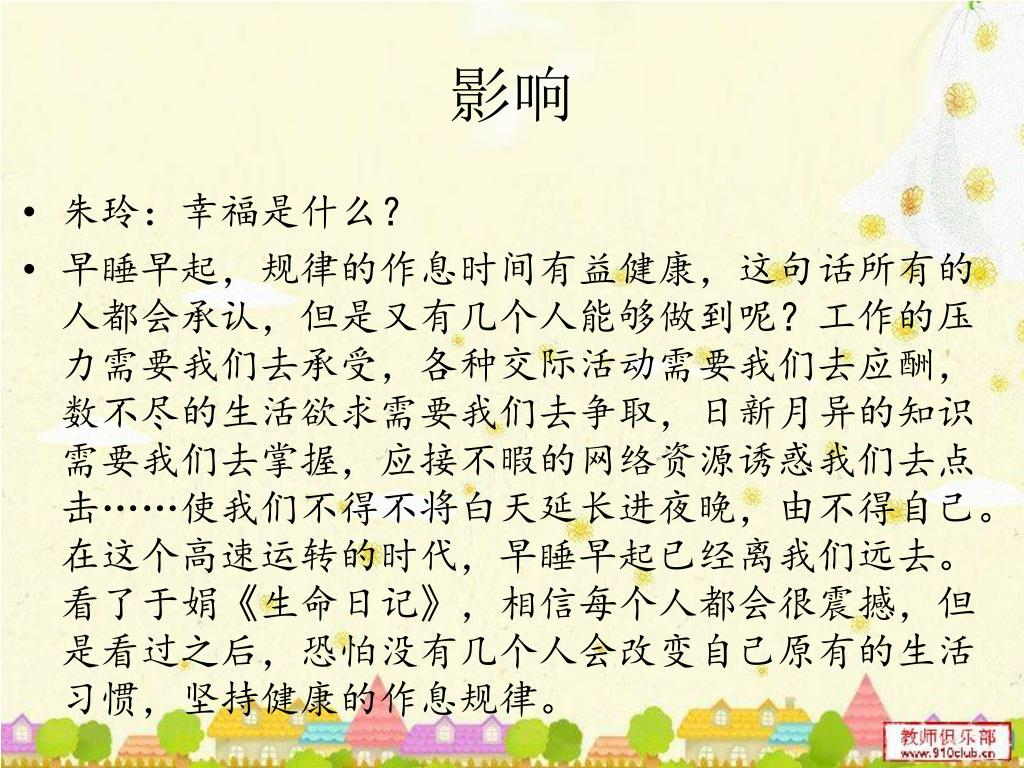 影响
• 朱玲：幸福是什么？
• 早睡早起，规律的作息时间有益健康，这句话所有的
人都会承认，但是又有几个人能够做到呢？工作的压
力需要我们去承受，各种交际活动需要我们去应酬，
数不尽的生活欲求需要我们去争取，日新月异的知识
需要我们去掌握，应接不暇的网络资源诱惑我们去点
击……使我们不得不将白天延长进夜晚，由不得自己。
在这个高速运转的时代，早睡早起已经离我们远去。
看了于娟《生命日记》，相信每个人都会很震撼，但
是看过之后，恐怕没有几个人会改变自己原有的生活
习惯，坚持健康的作息规律。
教师俱乐部
www.910club.cn